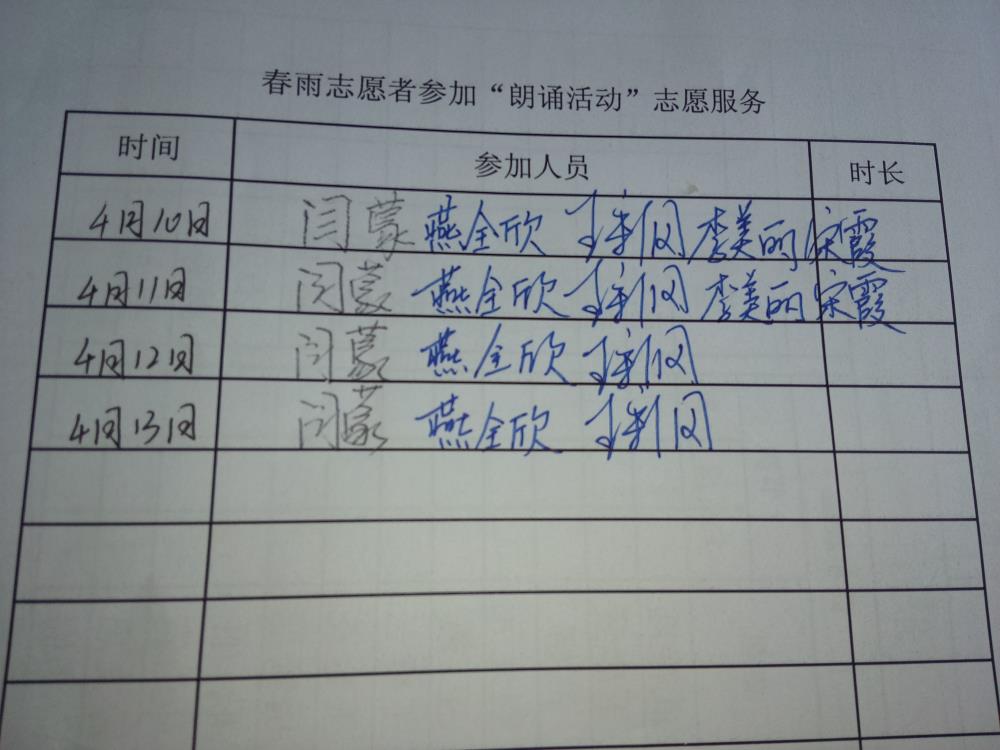 春雨志愿者参加“朗诵活动”志愿服务
时间 参加人员 时长
4月10日 闫蒙 燕全欣 李美丽 宋霞
4月11日 闫蒙 燕全欣 李美丽 宋霞
4月12日 闫蒙 燕全欣
4月13日 闫蒙 燕全欣